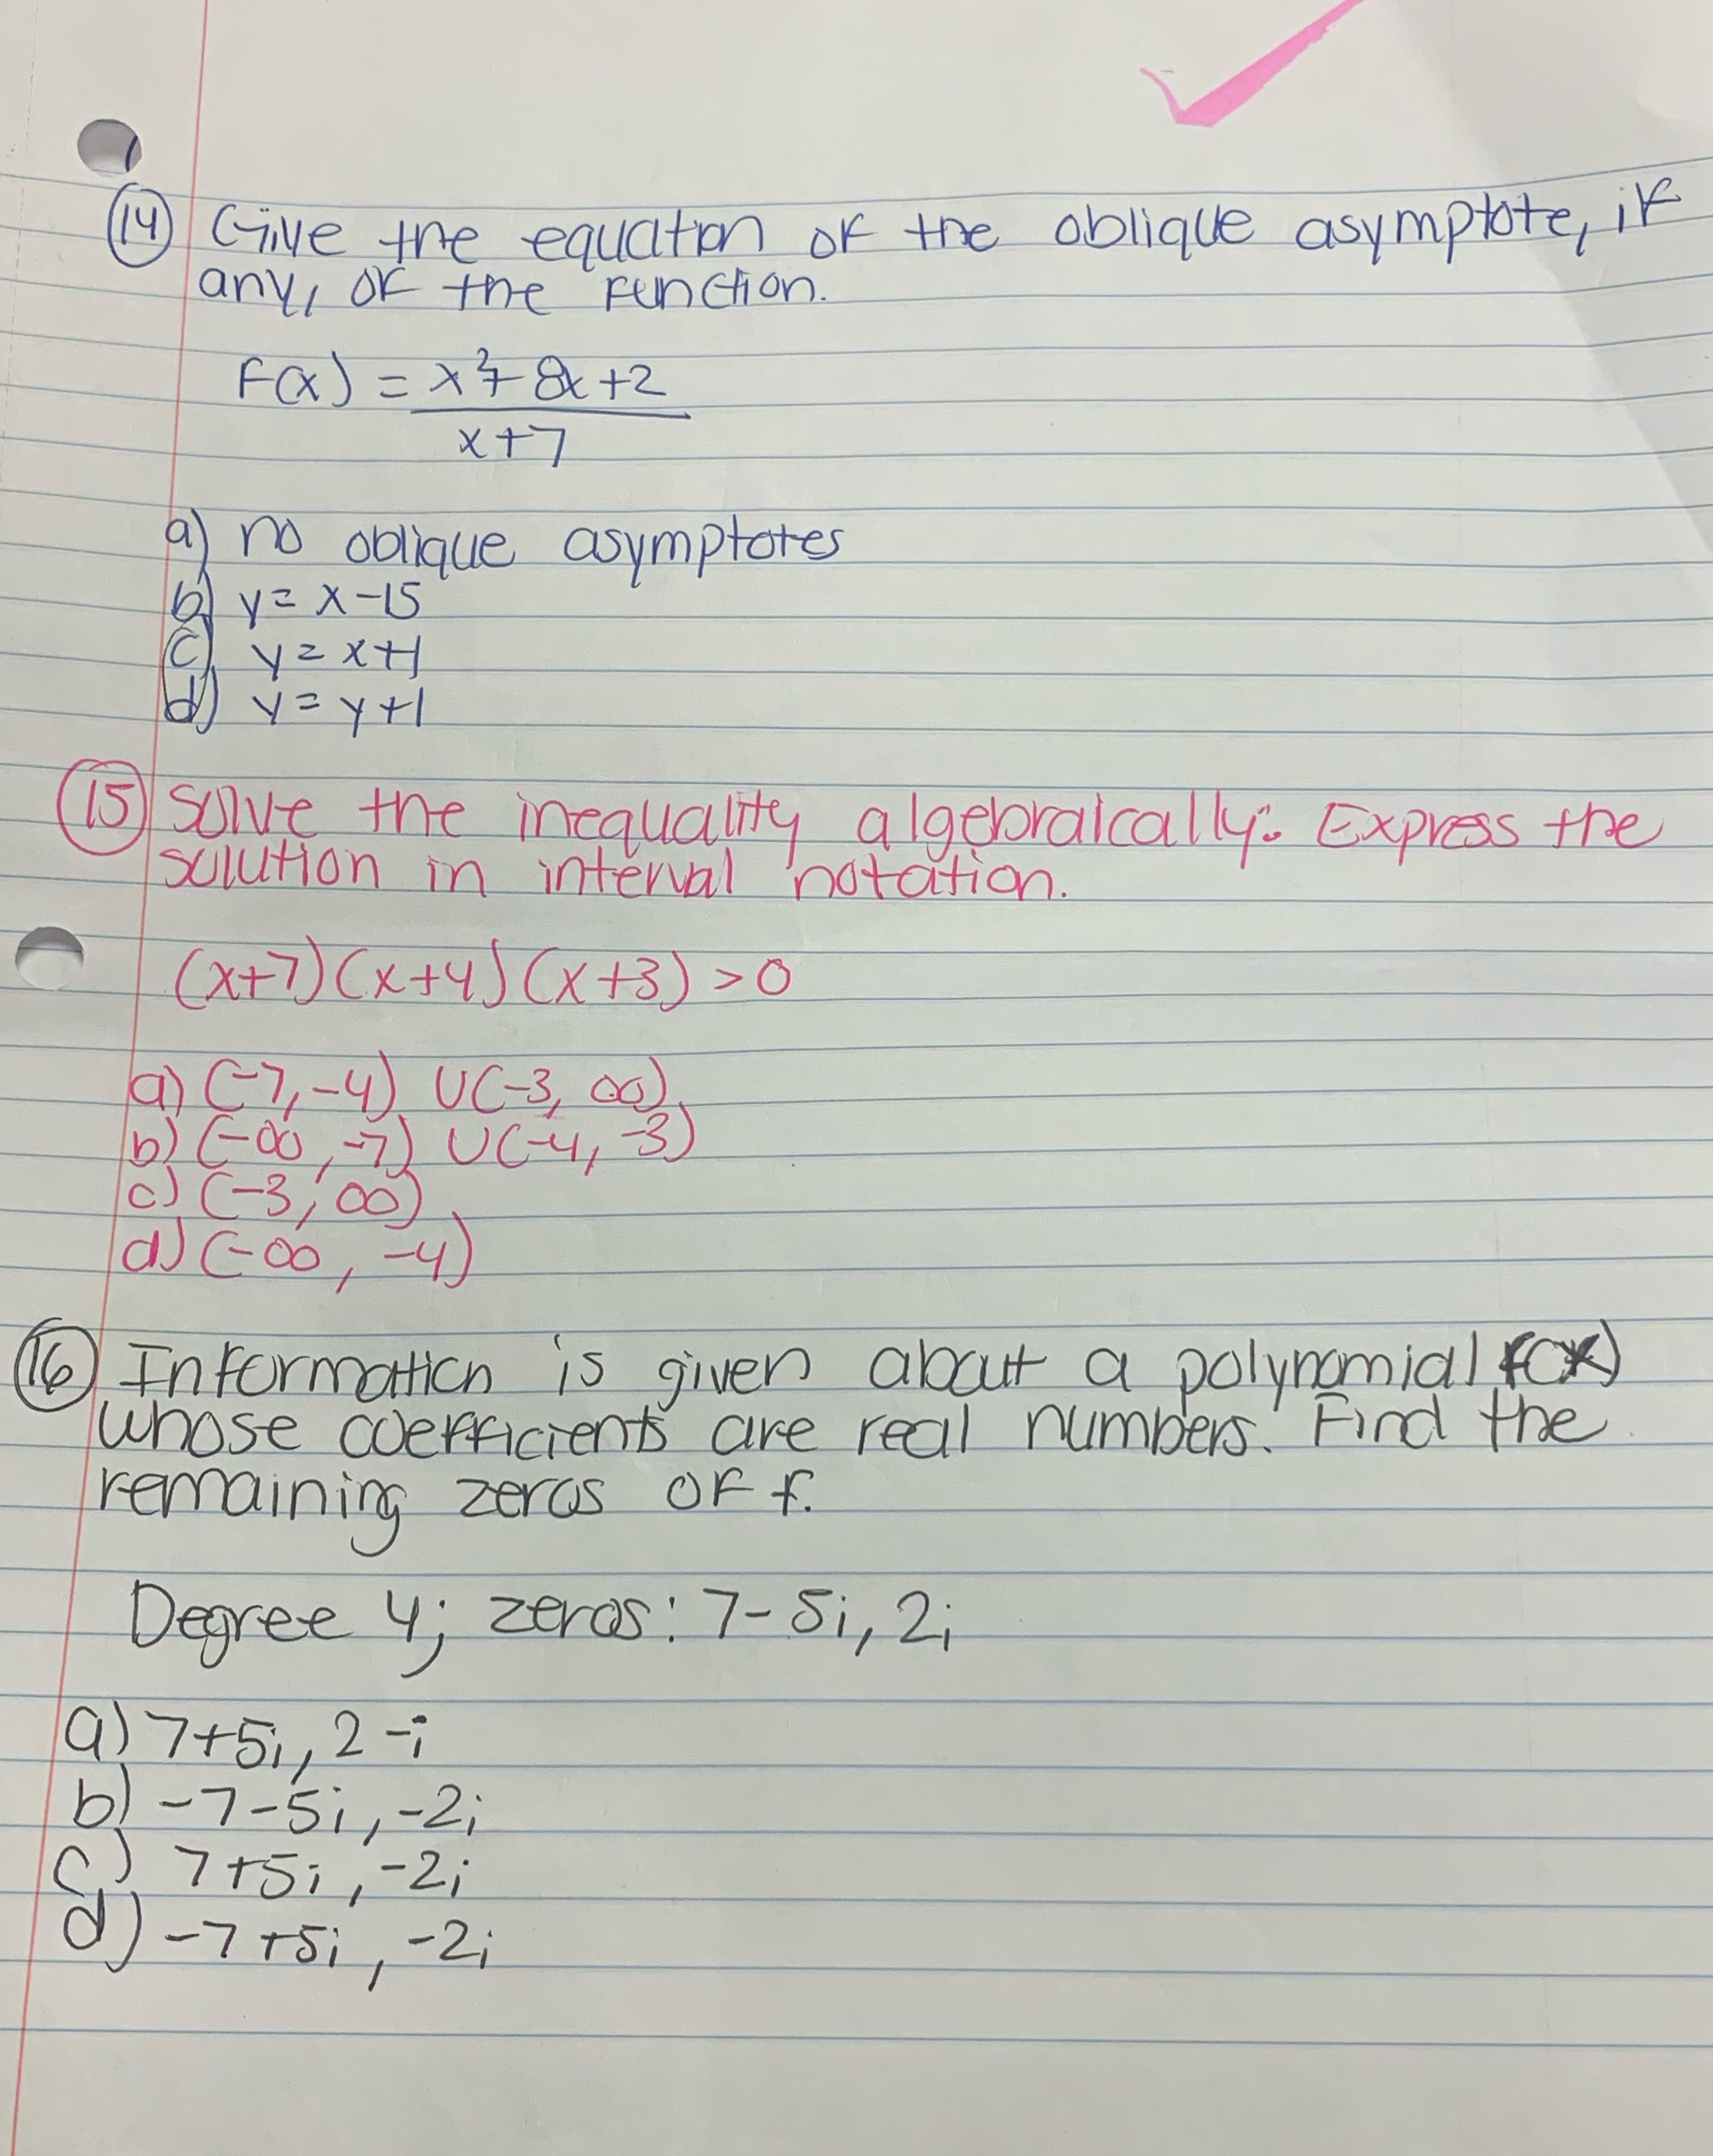 14 Give the equation of the oblique asymptote, if
any, of the function.
F(x) = x²+8x+2
x+7
a) no oblique asymptotes
b) y= x-15
c) y= x+1
d) y= y+1
15 solve the inequality algebraically. Express the
solution in interval notation.
(x+7)(x+4)(x+3)>0
a) (-7,-4) U(-3, ∞)
b) (-∞,-7) U(-4,-3)
c) (-3,∞)
d) (-∞, -4)
16 Information is given about a polynomial f(x)
whose coefficients are real numbers. Find the
remaining zeros of f.
Degree 4; zeros: 7-5i, 2i
a) 7+5i, 2-i
b) -7-5i, -2i
c) 7+5i, -2i
d) -7+5i, -2i